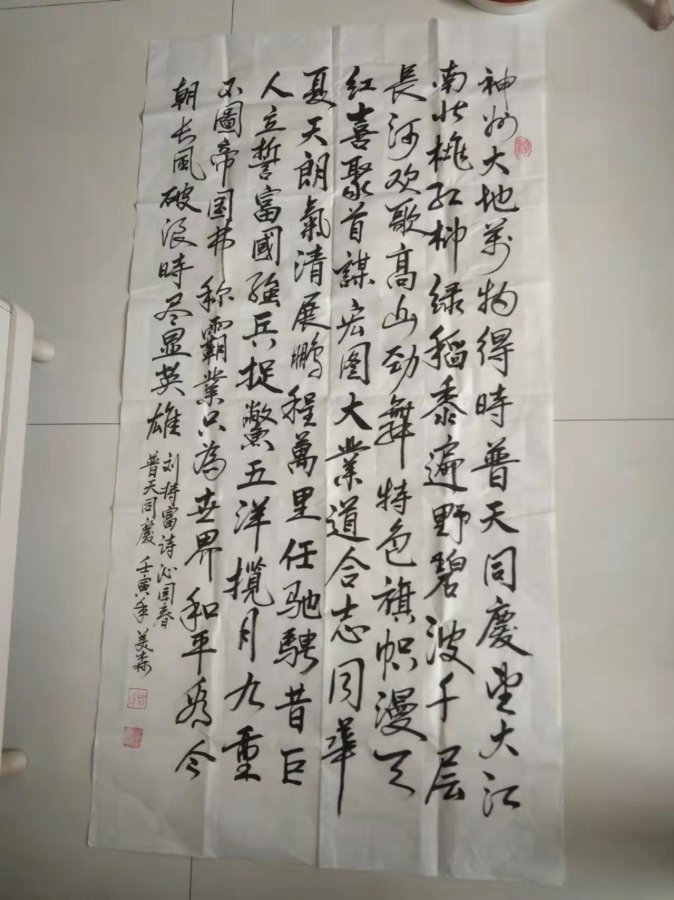 神州大地万物得時普天同慶望大江
南北桃红柳绿稻黍遍野碧波千层
長河欢歌高山劲舞特色旗帜漫天
红喜聚首謀宏图大業道合志同華
夏天朗氣清展鹏程萬里任驰騁昔巨
人立誓富國強兵捉鱉五洋攬月九重
不圖帝国弗称霸業只為世界和平看今
朝长风破浪時尽显英雄
刘持富诗沁园春
普天同慶 壬寅年 美森